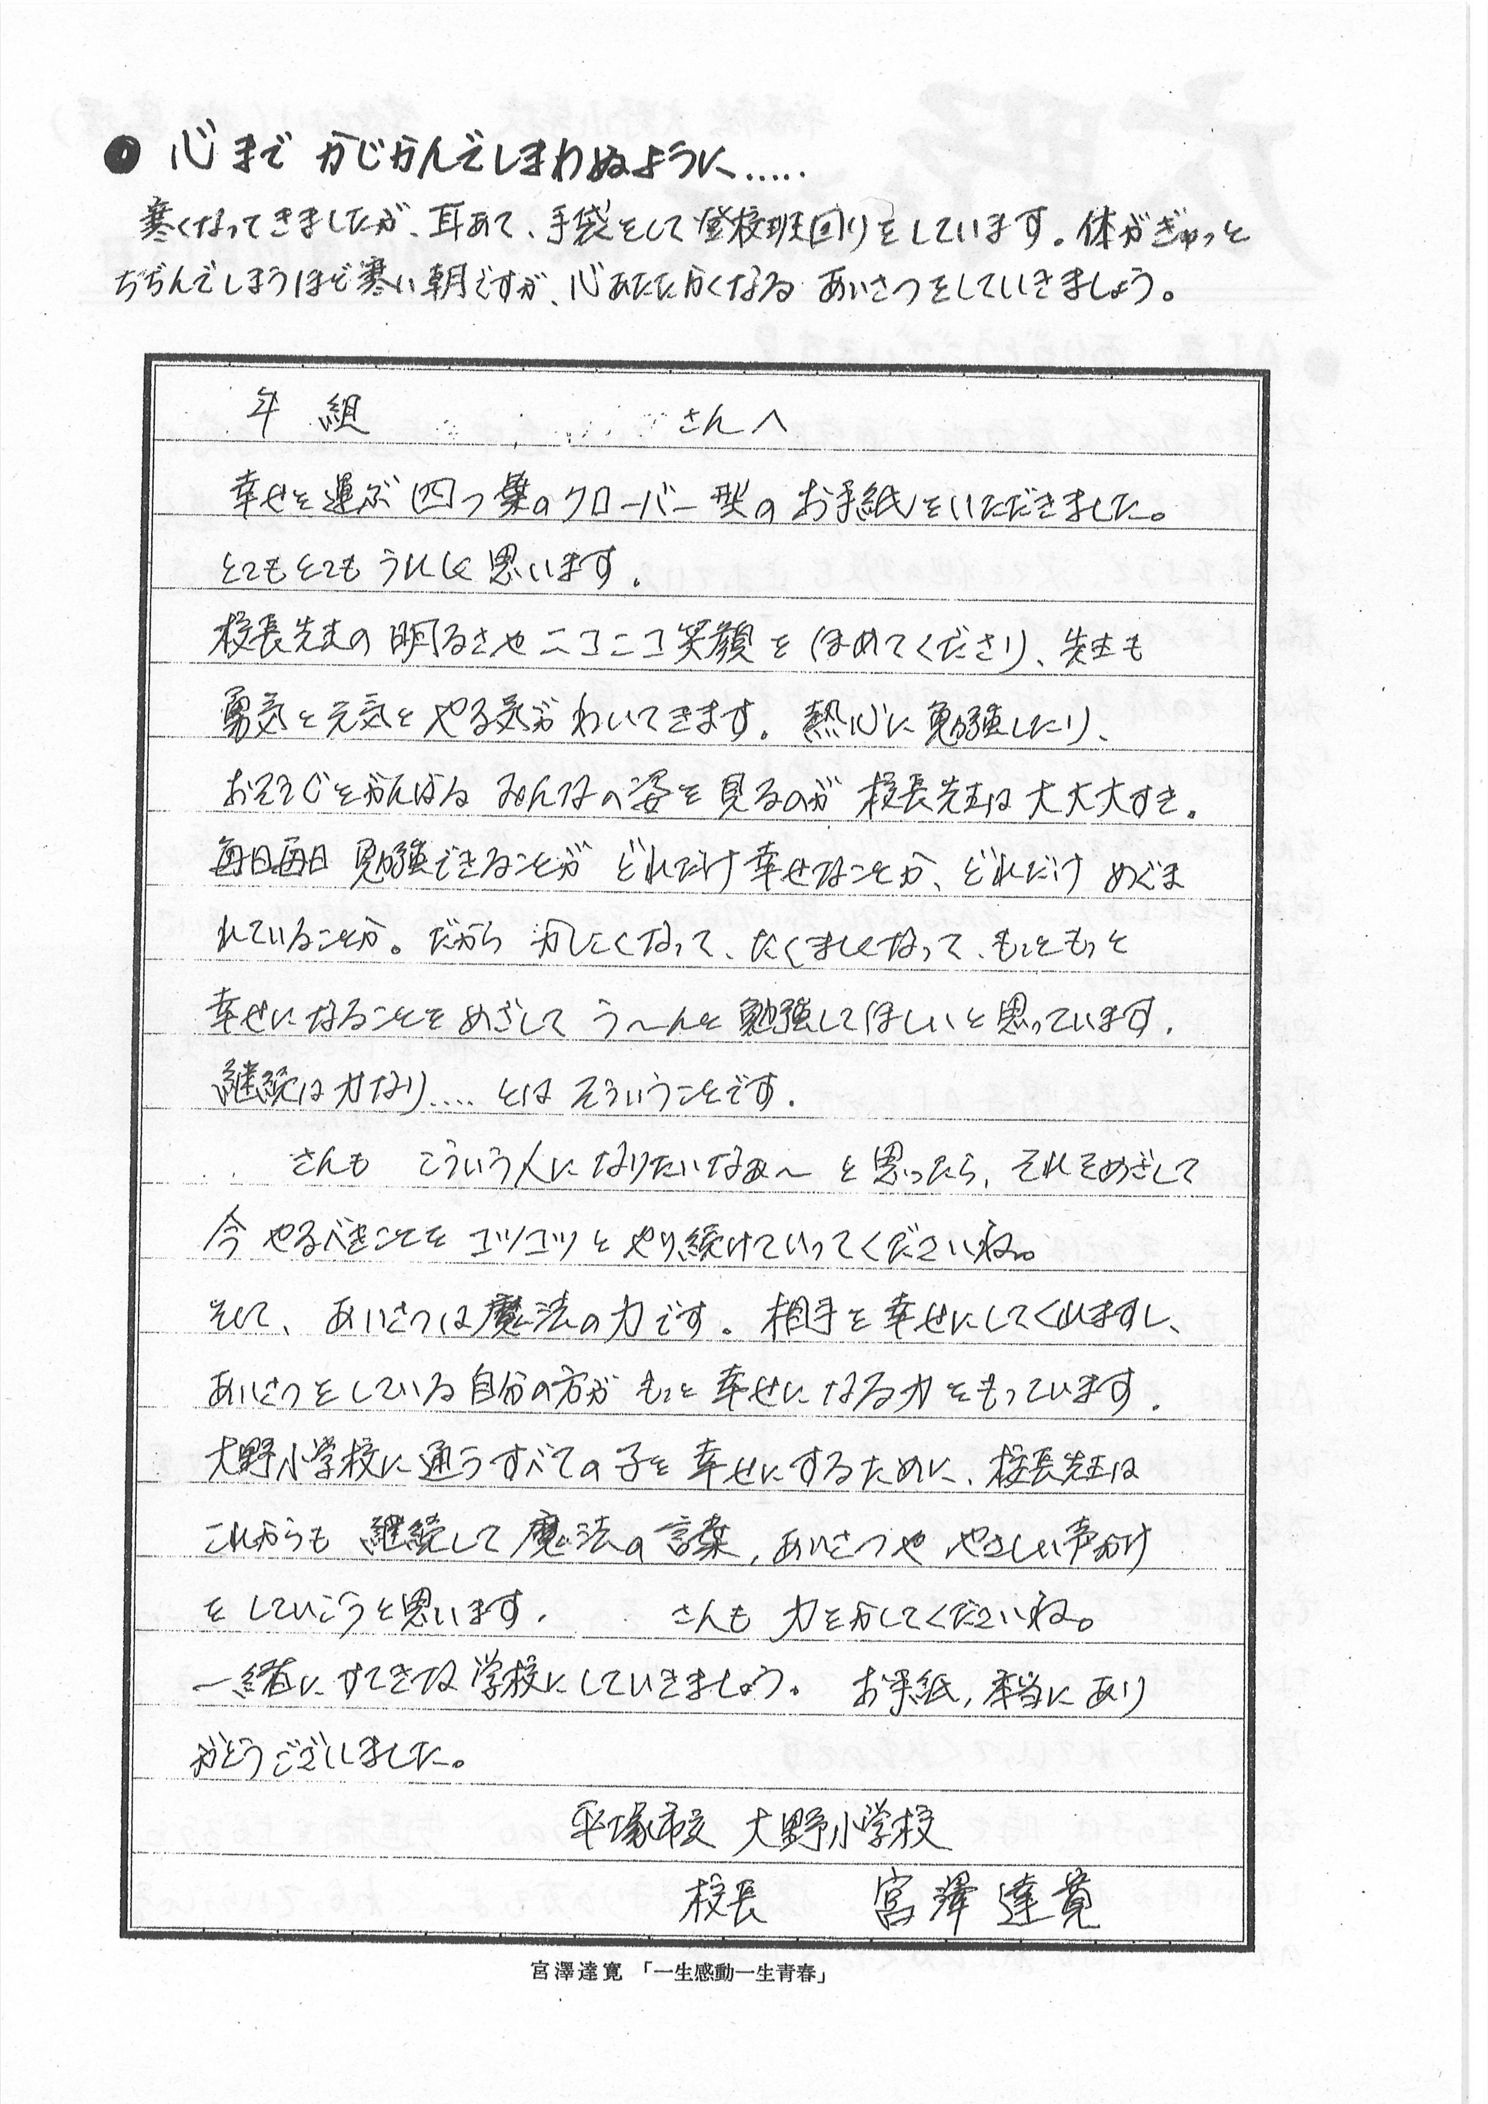 ●心まで かじかんでしまわぬように.....
寒くなってきましたが、耳あて、手袋をして登校班回りをしています。体がぎゅっと
ちぢんでしまうほど寒い朝ですが、心あたたかくなる あいさつをしていきましょう。
年 組 さんへ
幸せを運ぶ四つ葉のクローバー型のお手紙をいただきました。
とてもとてもうれしく思います。
校長先生の明るさやニコニコ笑顔をほめてくださり、先生も
勇気と元気とやる気がわいてきます。熱心に勉強したり、
おそうじをがんばるみんなの姿を見るのが校長先生は大大大すき。
毎日毎日勉強できることがどれだけ幸せなことか、どれだけめぐま
れていることか。だからかしこくなって、たくましくなって、もっともっと
幸せになることをめざしてう〜んと勉強してほしいと思っています。
継続は力なり....とはそういうことです。
さんも こういう人になりたいなぁ〜と思ったら、それをめざして
今やるべきことをコツコツとやり続けていってくださいね。
そして、あいさつは魔法の力です。相手を幸せにしてくれますし、
あいさつをしている自分の方がもっと幸せになる力をもっています。
大野小学校に通うすべての子を幸せにするために、校長先生は
これからも継続して魔法の言葉、あいさつややさしい声かけ
をしていこうと思います。 さんも力をかしてくださいね。
一緒にすてきな学校にしていきましょう。お手紙、本当にあり
がとうございました。
平塚市立 大野小学校
校長 宮澤達寛
宮澤達寛 「一生感動一生青春」